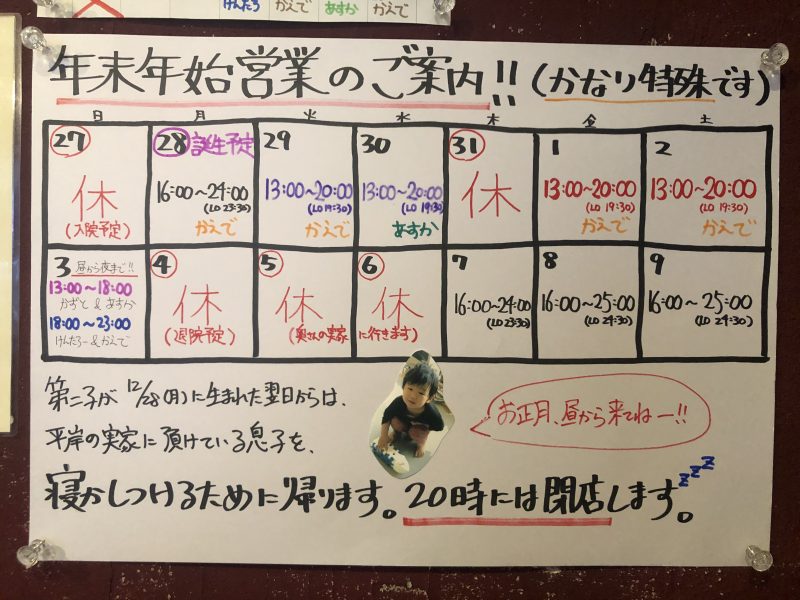 けんたろ かえで あすか かえで
年末年始営業のご案内!! (かなり特殊です)
日 月 火 水 木 金 土
27 28 誕生予定 29 30 31 1 2
休 16:00〜24:00 13:00〜20:00 13:00〜20:00 休 13:00〜20:00 13:00〜20:00
(LO 23:30) (LO 19:30) (LO 19:30) (LO 19:30) (LO 19:30)
(入院予定) かえで かえで あすか かえで かえで
3 昼から夜まで!! 4 5 6 7 8 9
13:00〜18:00
かずと & あすか
18:00〜23:00 休 休 休 16:00〜24:00 16:00〜25:00 16:00〜25:00
(LO 23:30) (LO 24:30) (LO 24:30)
けんたろー & かえで (退院予定) (奥さんの実家 に行きます)
第二子が 12/28(月)に生まれた翌日からは、
平岸の実家に頂けている息子を、
お正月、昼から来てねー!!
寝かしつけるために帰ります。20時には閉店します。zzz